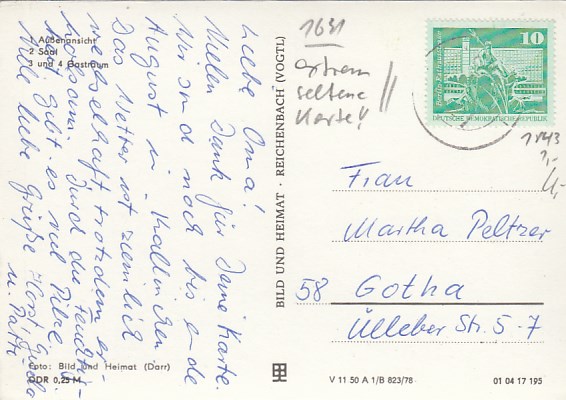 1 Außenansicht
2 Saal
3 und 4 Gastraum
Liebe Oma!
Vielen Dank für Deine Karte.
Wir sind noch bis Ende
August in Kallinchen.
Das Wetter ist ziemlich
wechselhaft trotzdem er-
holsam. Durch die Feuchtig-
keit gibt es viel Pilze.
Viele liebe Grüße Horst, Guida
u. Patti
Foto: Bild und Heimat (Darr)
DDR 0,25 M
BILD UND HEIMAT · REICHENBACH (VOGTL)
1631
extrem
seltene
Karte!!
10
DEUTSCHE DEMOKRATISCHE REPUBLIK
1,-
4,-
Frau
Martha Peltzer
58 Gotha
Ülleber Str. 5-7
V 11 50 A 1/B 823/78
01 04 17 195